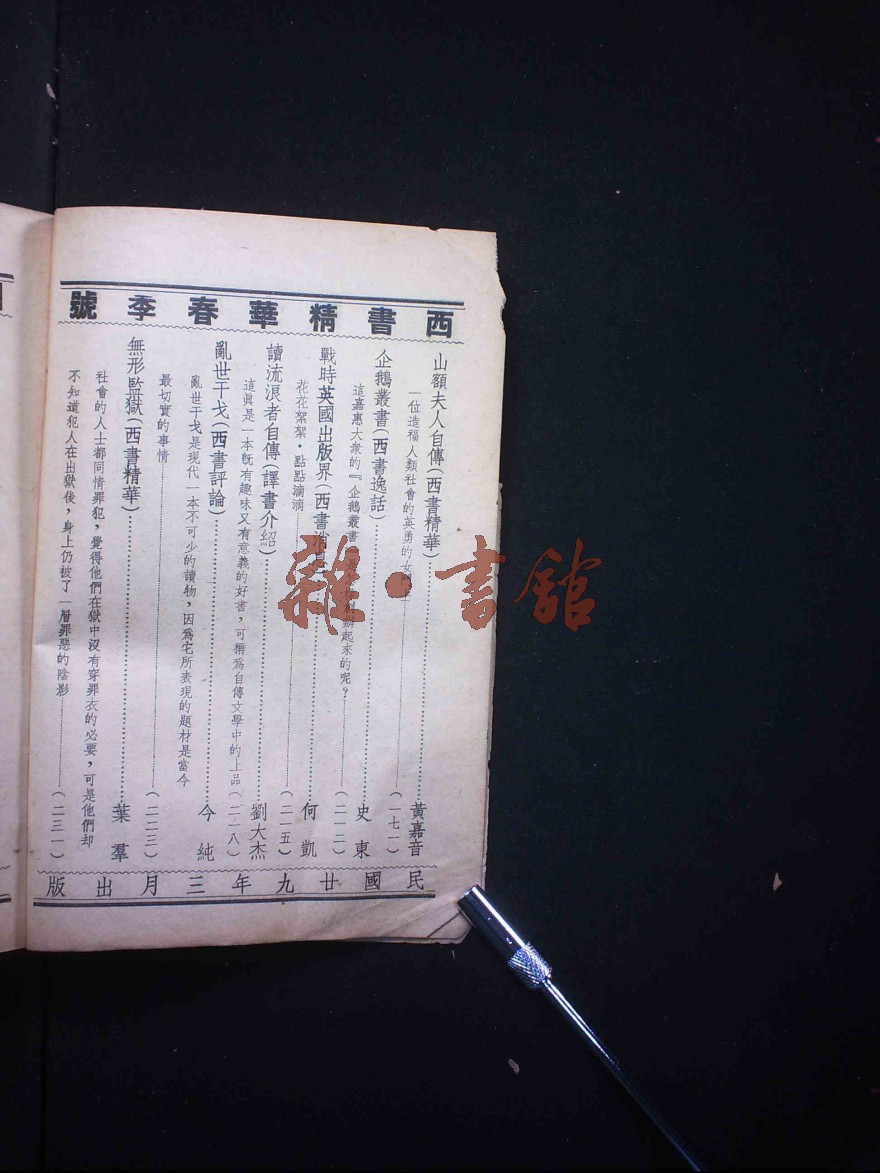 西書精華春季號
山額夫人自傳(西書精華)
黃嘉音
一位造福人類社會的英勇的女
(一七一)
企鵝叢書(西書逸話)
史東
這嘉惠大衆的『企鵝叢書 起來的呢?
(二一二)
戰時英國出版界(西書消息
何凱
花花絮絮・點點滴滴
(二一五)
讀流浪者自傳(譯書介紹)
劉大杰
這眞是一本旣有趣味又有意義的好書,可稱爲自傳文學中的上品
(二一八)
亂世干戈(西書評論)
今純
亂世干戈是現代一本不可少的讀物,因爲它所表現的題材是當今
最切實的事情
(二二三)
無形監獄(西書精華)
葉羣
社會的人士都同情罪犯,覺得他們在獄中沒有穿罪衣的必要,可是他們却
不知道犯人在出獄後,身上仍被了一層罪惡的陰影
(二三一)
民國廿九年三月出版
雜・書館